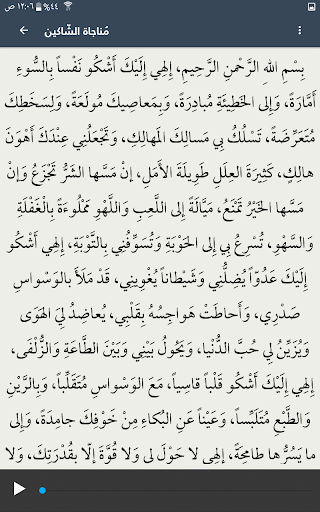 ١٢:٠٦ ص ٤٤٪
مُناجاة الشّاكين
بِسْمِ اللهِ الرَّحْمنِ الرَّحِيمِ، إِلهِي إِلَيْكَ أَشْكُو نَفْساً بِالسُّوءِ
أَمَّارَةً، وَإِلى الخَطِيئَةِ مُبادِرَةً، وَبِمَعاصِيكَ مُولَعَةً، وَلِسَخَطِكَ
مُتَعَرِّضَةً، تَسْلُكُ بِي مَسالِكَ المَهالِكِ، وَتَجْعَلُنِي عِنْدَكَ أَهْوَنَ
هالِكٍ، كَثِيرَةَ العِلَلِ طَوِيلَةَ الأَمَلِ، إِنْ مَسَّها الشَرُّ تَجْزَعُ وَإِنْ
مَسَّها الخَيْرُ تَمْنَعُ، مَيَّالَةً إِلى اللَّعِبِ وَاللَّهْوِ مَمْلُوءَةً بِالْغَفْلَةِ
وَالسَّهْوِ، تُسْرِعُ بِي إِلى الحَوْبَةِ وَتُسَوِّفُنِي بِالتَّوْبَةِ، إِلهِي أَشْكُو
إِلَيْكَ عَدُوّاً يُضِلُّنِي وَشَيْطاناً يُغْوِينِي، قَدْ مَلَأَ بِالوَسْواسِ
صَدْرِي، وَأَحاطَتْ هَواجِسُهُ بِقَلْبِي، يُعاضِدُ لِيَ الهَوَى
وَيُزَيِّنُ لِي حُبَّ الدُّنْيا، وَيَحُولُ بَيْنِي وَبَيْنَ الطَّاعَةِ وَالزُّلْفَى،
إِلهِي إِلَيْكَ أَشْكُو قَلْباً قاسِياً، مَعَ الوَسْواسِ مُتَقَلِّباً، وَبِالرَّيْنِ
وَالطَّبْعِ مُتَلَبِّساً، وَعَيْناً عَنِ البُكاءِ مِنْ خَوْفِكَ جامِدَةً، وَإِلى
ما يَسُرُّها طامِحَةً، إِلهِي لا حَوْلَ لِي وَلا قُوَّةَ إِلّا بِقُدْرَتِكَ، وَلا